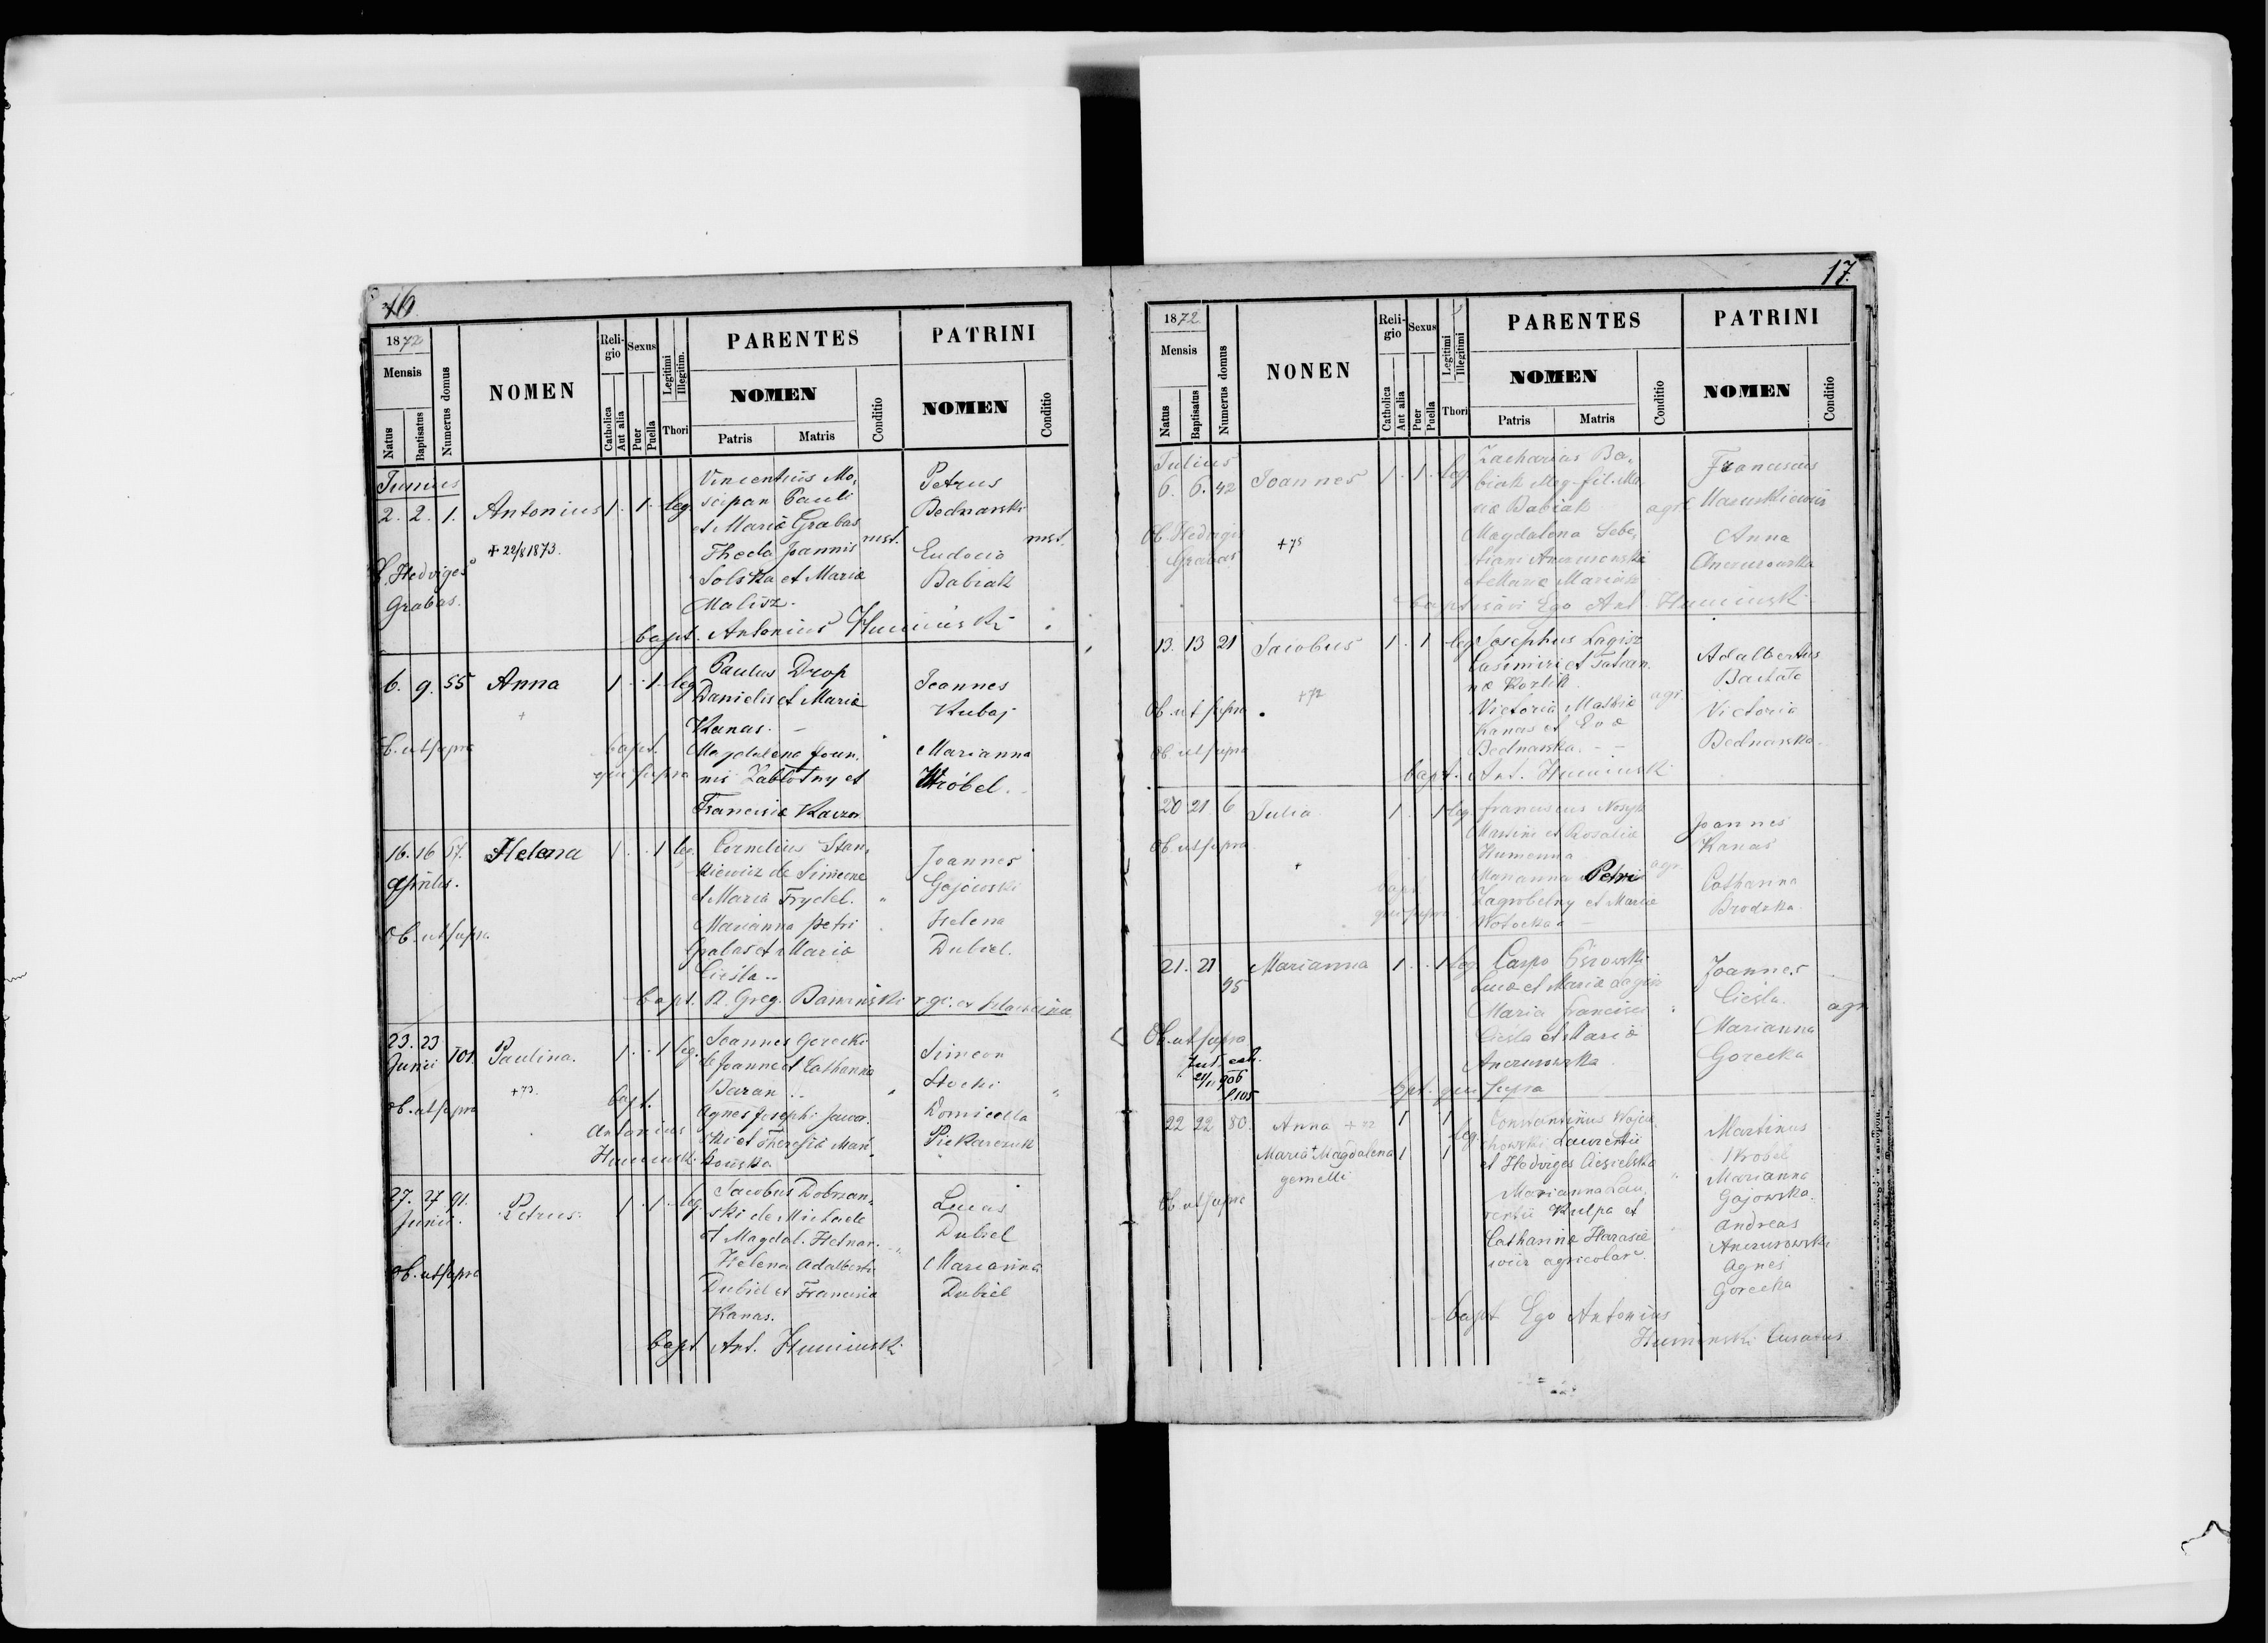 16.
1872
Mensis
Natus
Baptisatus
Numerus domus
NOMEN
Religio
Catholica
Aut alia
Sexus
Puer
Puella
Legitimi
Illegitim.
Thori
PARENTES
NOMEN
Patris
Matris
Conditio
PATRINI
NOMEN
Conditio
Junius
2. 2. 1. Antonius 1. 1. leg.
+ 22/8 1873.
Ob. Hedviges
Grabas.
Vincentius Mo-
scipan Pauli
et Maria Grabas
Thecla Joannis
Solska et Maria
Malisz.
mst.
Petrus
Bednarski
Eudocia
Babiak
mst.
bapt. Antonius Humiński
6. 9. 55 Anna 1. 1. leg
+
Ob. ut supra
bapt.
qui supra
Paulus Drop
Danielis et Maria
Kanas. –
Magdalena Joan-
nis Zabłotny et
Francisca
Joannes
Kubaj
Marianna
Wróbel.
16. 16 57. Helena 1. 1 leg.
Aprilis.
Ob. ut supra.
Cornelius Stan-
kiewicz de Simeone
et Maria Frydel.
Marianna Petri
Grabas et Maria
Cieśla..
Joannes
Gajowski
Helena
Dubiel.
bapt. R. Greg. Bamiński r. gr. ex
23. 23
Junii 101. Paulina. 1. 1 leg.
+73.
Ob. ut supra
bapt.
Antonius
Humiński.
Joannes Gorecki
de Joanne et Catharina
Baran..
Agnes Josephi
ski et Theresia Mań-
kowska
Simeon
Stocki
Domicella
Piekarczuk
27. 27 91. Petrus. 1. 1. leg.
Junii.
Ob. ut supra
Jacobus Dobrzań-
ski de Michaele
et Magdal. Hetnar.
Helena Adalberti
Dubiel et Francisca
Kanas.
Lucas
Dubiel
Marianna
Dubiel
bapt Ant. Humiński
17.
1872
Mensis
Natus
Baptisatus
Numerus domus
NONEN
Religio
Catholica
Ant alia
Sexus
Puer
Puella
Legitimi
Illegitimi
Thori
PARENTES
NOMEN
Patris
Matris
Conditio
PATRINI
NOMEN
Conditio
Julius
6. 6. 42 Joannes 1. 1. leg.
Ob. Hedvigis
Grabas
+75
Zacharias Ba-
biak fil. Ma-
ria Babiak
Magdalena Seba-
stiani Anczurowski
et Maria
agr.
Franciscus
Mazurkiewicz
Anna
Anczurowska
baptisavi Ego Ant. Humiński
13. 13 21 Jacobus 1. 1 leg
+72
Ob. ut supra
Ob. ut supra
Josephus Lagisz
Casimiri et Tatian-
na Kozlik.
Victoria
Kanas et Eva
Bednarska. – –
agr.
Adalbertus
Victoria
Bednarska
bapt. Ant. Humiński
20 21 6 Julia 1. 1 leg.
Ob. ut supra
+
bapt
qui supra.
Franciscus
Martini et Rosalia
Humenna
Marianna Petri
Zagrobelny et Maria
agr
Joannes
Kanas
Catharina
Brodzka
21. 21 Marianna 1. 1 leg.
95
Ob. ut supra
Test. extr.
21/11 906
l. 105
Maria Francisci
Cieśla et Maria
Anczurowska
Joannes
Cieśla.
Marianna
Gorecka
agr
bpt. qui supra
22 22 80. Anna +72 1 1 leg.
Maria + Magdalena 1 1
gemelli
Ob. ut supra
Constantinus Wojcie-
chowski Laurentii
et Hedviges Ciesielska
Marianna Lau-
rentii Kulpa et
Catharina Harasie-
wicz agricolae
Martinus
Wróbel
Marianna
Gajowska.
Andreas
Anczurowski
Agnes
Gorecka
bapt Ego Antonius
Humiński Curatus.